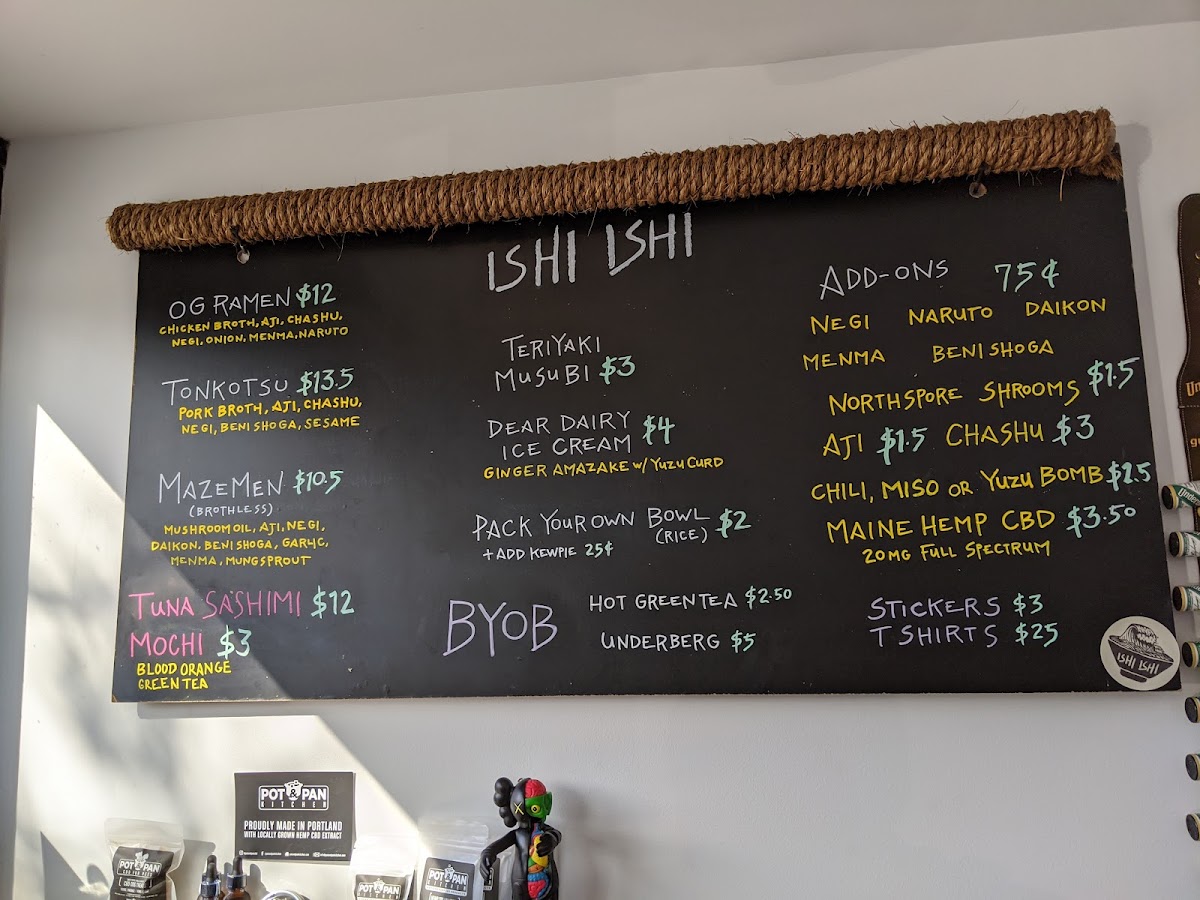 ISHI ISHI
OG RAMEN $12
CHICKEN BROTH, AJI, CHASHU,
NEGI, ONION, MENMA, NARUTO
TONKOTSU $13.5
PORK BROTH, AJI, CHASHU,
NEGI, BENI SHOGA, SESAME
MAZEMEN $10.5
(BROTHLESS)
MUSHROOM OIL, AJI, NEGI,
DAIKON, BENI SHOGA, GARLIC,
MENMA, MUNGSPROUT
TUNA SASHIMI $12
MOCHI $3
BLOOD ORANGE
GREEN TEA
TERIYAKI
MUSUBI $3
DEAR DAIRY
ICE CREAM $4
GINGER AMAZAKE W/ YUZU CURD
PACK YOUR OWN BOWL $2
(RICE)
+ ADD KEWPIE 25¢
BYOB
HOT GREEN TEA $2.50
UNDERBERG $5
ADD-ONS 75¢
NEGI NARUTO DAIKON
MENMA BENI SHOGA
NORTHSPORE SHROOMS $1.5
AJI $1.5 CHASHU $3
CHILI, MISO OR YUZU BOMB $2.5
MAINE HEMP CBD $3.50
20MG FULL SPECTRUM
STICKERS $3
T SHIRTS $25
ISHI ISHI
POT & PAN
KITCHEN
PROUDLY MADE IN PORTLAND
WITH LOCALLY GROWN HEMP CBD EXTRACT
POT & PAN
POT & PAN
POT & PAN
KITCHEN